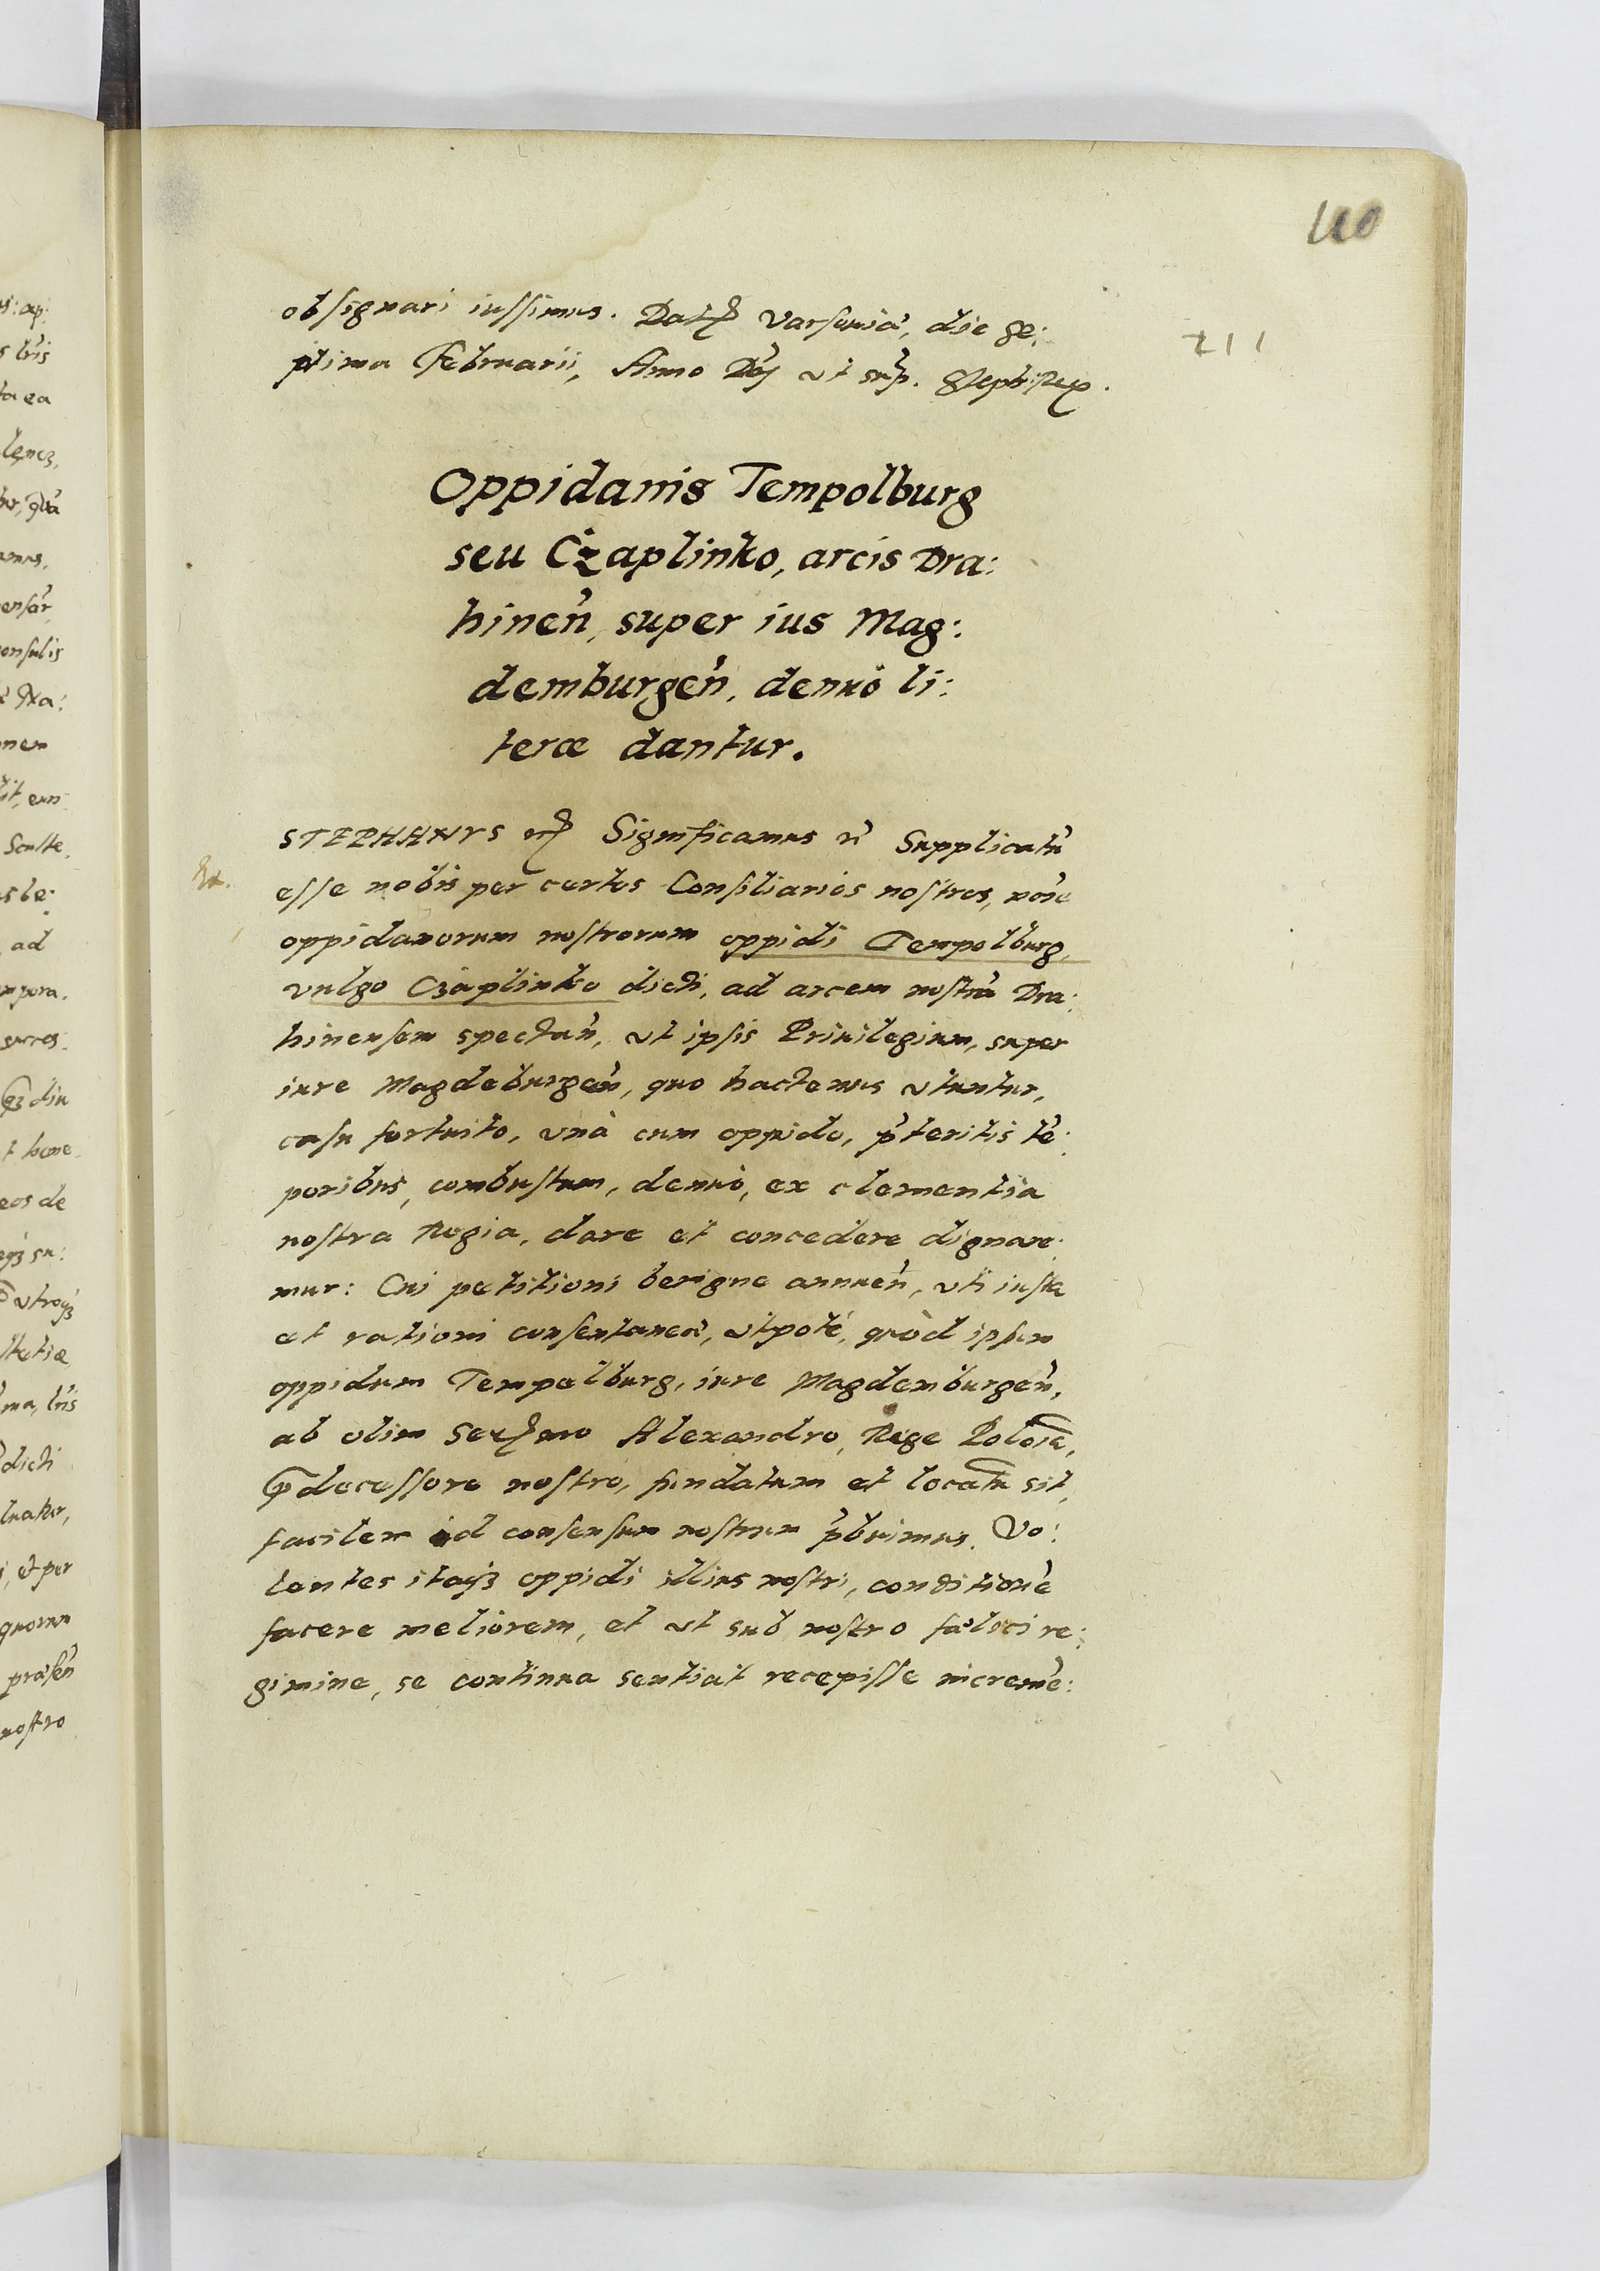 110
211
obsignari iussimus. Dat Varsauiæ, die Se:
ptima Februarii, Anno Dnj vt supr. Steph: Rex.
Oppidanis Tempolburg
seu Czaplinko, arcis Dra:
hinen̄, super ius Mag:
demburgen̄, denuò li:
teræ dantur.
STEPHANVS etc Significamus &c Supplicatũ
esse nobis per certos Consiliarios nostros, noĩe
oppidanorum nostrorum oppidi Tempolburg,
vulgo Czaplinko dicti, ad arcem nostrã Dra:
hinensem spectan̄, vt ipsis Priuilegium, super
iure Magdeburgen̄, quo hactenus vtuntur,
casu fortuito, vnà cum oppido, p̃teritis tẽ:
poribus, combustum, denuò, ex clementia
nostra Regia, dare et concedere dignare:
mur: Cui petitioni benigne annuen̄, vti iustæ
et rationi consentaneæ, vtpotè, quòd ipsum
oppidum Tempelburg, iure Magdemburgen̄,
ab olim Sermo Alexandro, Rege Poloĩæ,
p̃decessore nostro, fundatum et locatũ sit,
facilem id consensum nostrum p̃buimus. Vo:
lentes itaq₃ oppidi illius nostri, conditionẽ
facere meliorem, et vt sub nostro fælici re:
gimine, se continua sentiat recepisse incremẽ: